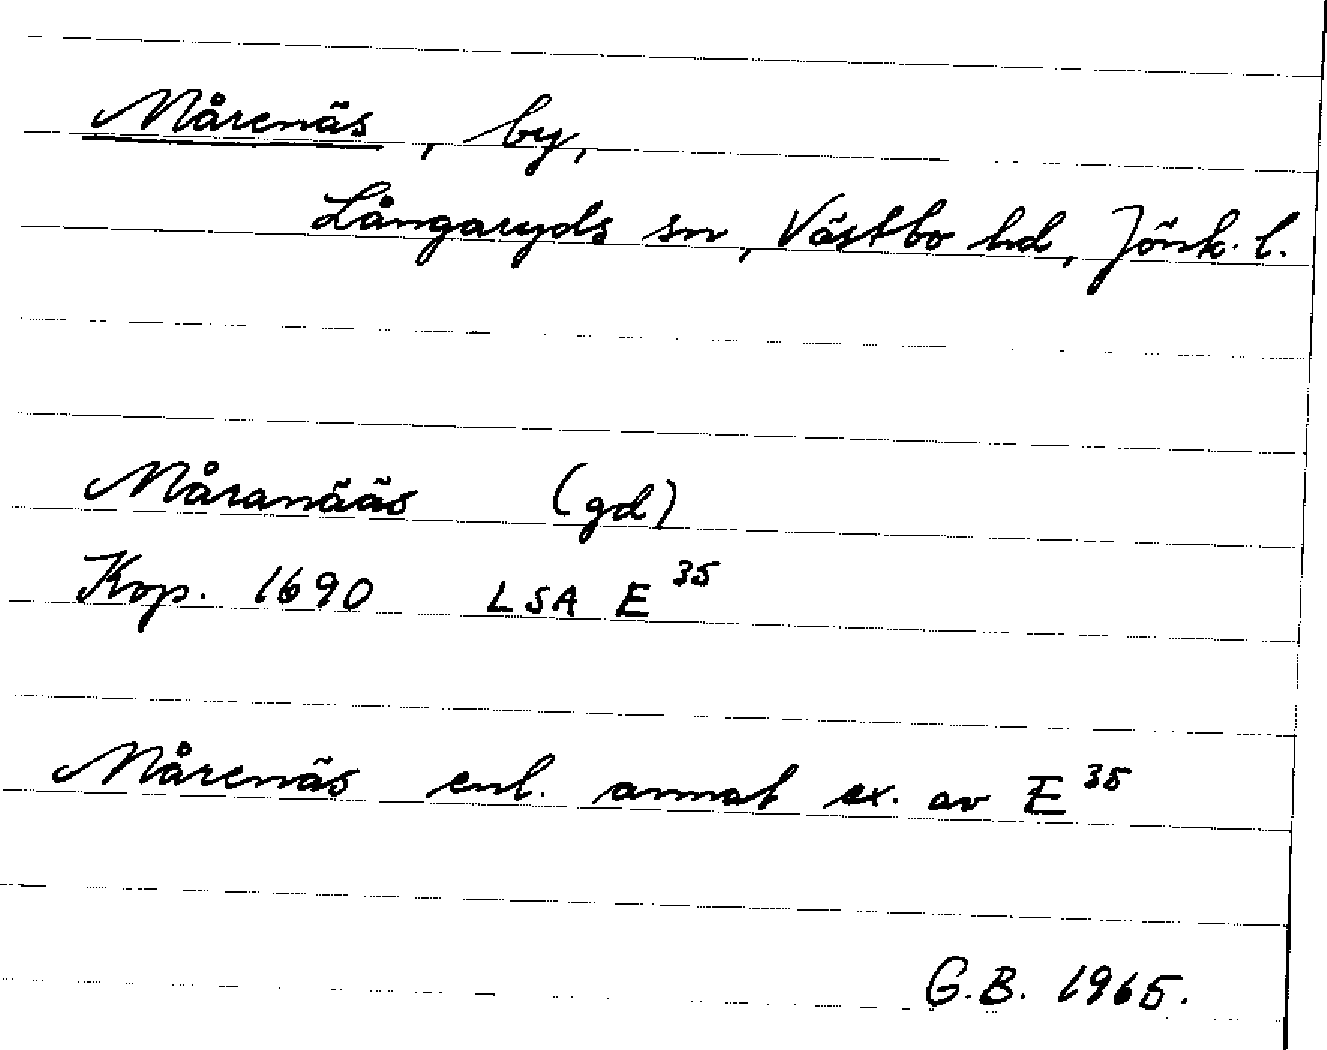 Mårenäs, by,
Långaryds sn, Västbo hd, Jönk. l.
Måranääs (gd)
Kop. 1690 LSA E 35
Mårenäs enl. annat ex. av E 35
G.B. 1965.